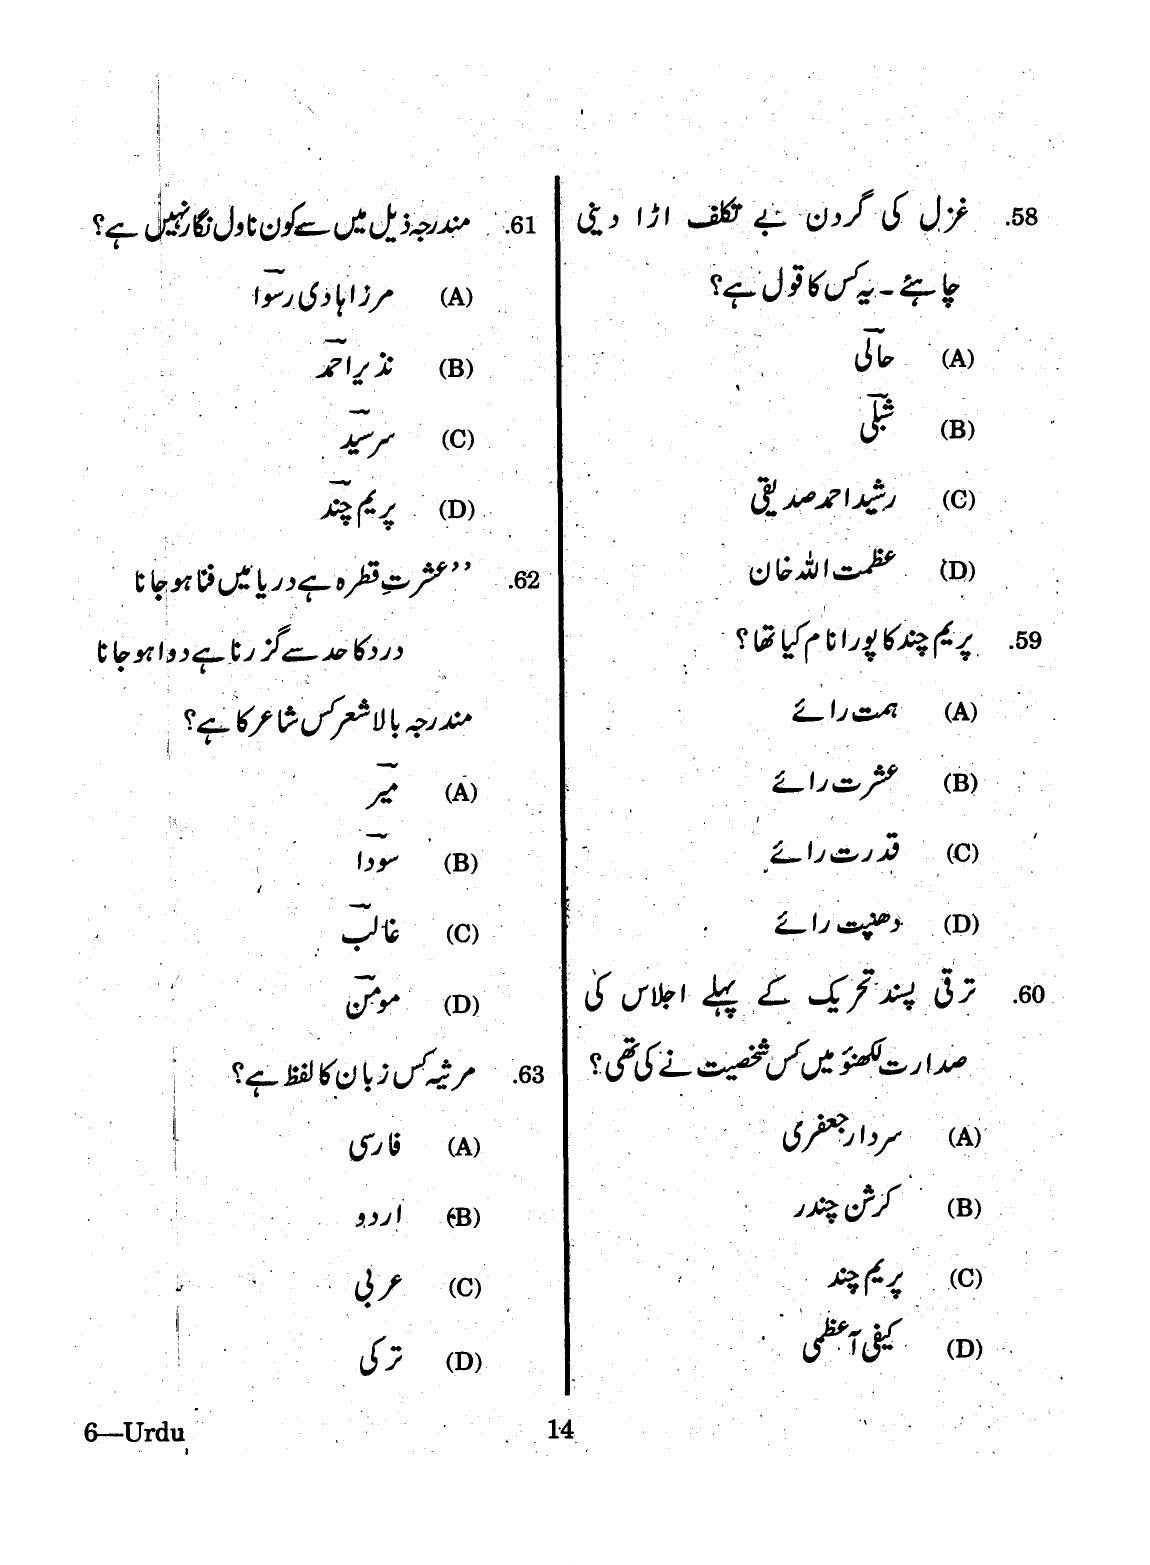 58. غزل کی گردن بے تکلف اڑا دینی
چاہئے ۔ یہ کس کا قول ہے؟
(A) حالیؔ
(B) شبلیؔ
(C) رشید احمد صدیقی
(D) عظمت اللہ خان
59. پریم چند کا پورا نام کیا تھا؟
(A) ہمت رائے
(B) عشرت رائے
(C) قدرت رائے
(D) دھنپت رائے
60. ترقی پسند تحریک کے پہلے اجلاس کی
صدارت لکھنؤ میں کس شخصیت نے کی تھی؟
(A) سردار جعفری
(B) کرشن چندر
(C) پریم چند
(D) کیفی آعظمی
61. مندرجہ ذیل میں سے کون ناول نگار نہیں ہے؟
(A) مرزا ہادی رسواؔ
(B) نذیر احمدؔ
(C) سرسیدؔ
(D) پریم چندؔ
62. ’’عشرتِ قطرہ ہے دریا میں فنا ہو جانا
درد کا حد سے گزرنا ہے دوا ہو جانا
مندرجہ بالا شعر کس شاعر کا ہے؟
(A) میرؔ
(B) سوداؔ
(C) غالبؔ
(D) مومنؔ
63. مرثیہ کس زبان کا لفظ ہے؟
(A) فارسی
(B) اردو
(C) عربی
(D) ترکی
6—Urdu
14